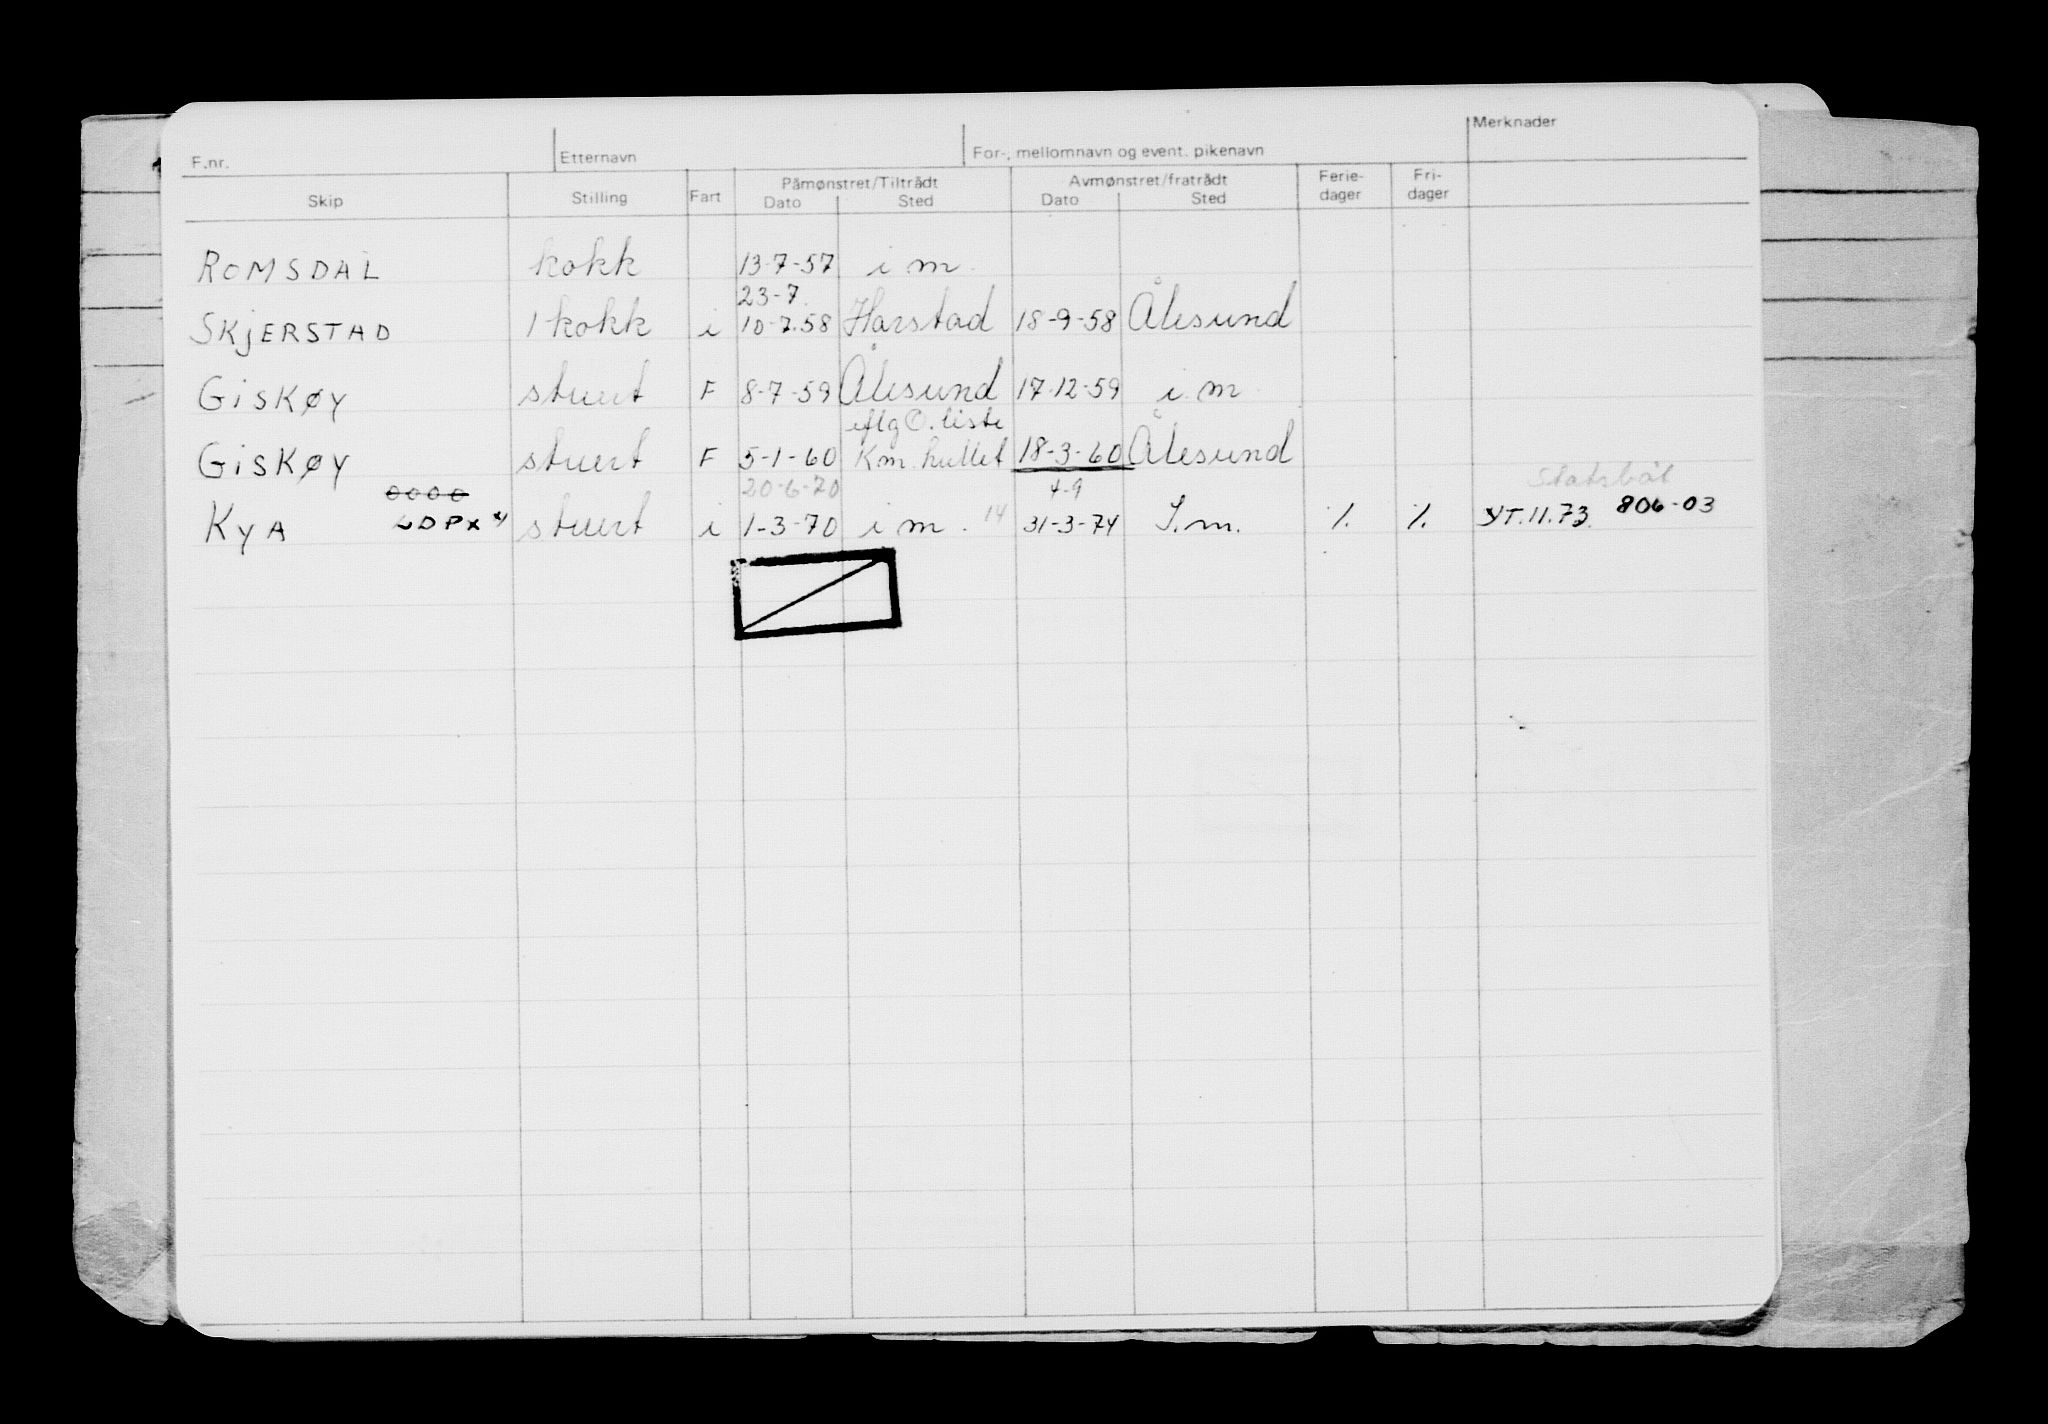 F.nr. Etternavn For-, mellomnavn og event. pikenavn Merknader
Skip Stilling Fart Påmønstret/Tiltrådt Avmønstret/fratrådt Ferie-dager Fri-dager
Dato Sted Dato Sted
ROMSDAL kokk 13-7-57 i m.
23-7.
SKJERSTAD 1 kokk i 10-7.58 Harstad 18-9-58 Ålesund
GISKØY stuert F 8-7-59 Ålesund 17-12-59 i m
iflg O. liste
GISKØY stuert F 5-1-60 K.m. hullet 18-3-60 Ålesund
0000 20-6-70 4-9 Statsbåt
KYA LDPX stuert i 1-3-70 i m. 14 31-3-74 I.m. ./. ./. YT.11.73. 806-03